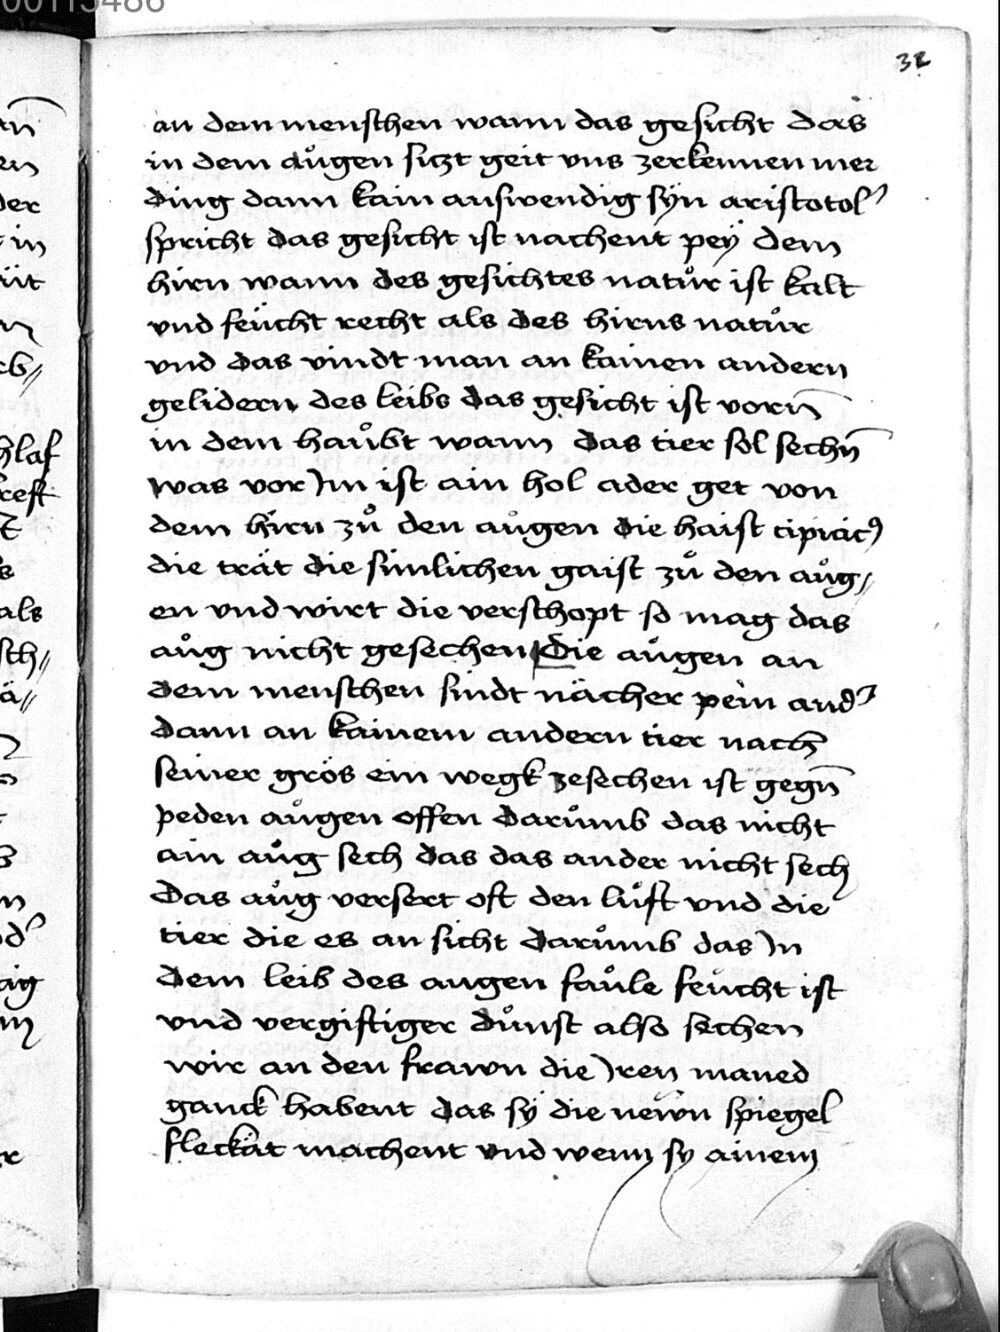 00115486
32
an dem menschen wann das gesicht das
in dem aůgen siczt geit vns zerkennen mer
ding dann kain auswendig syn aristotol
spricht das gesicht ist nachent pey dem
hirn wann des gesichtes natůr ist kalt
vnd feücht recht als des hirns natůr
vnd das vindt man an kainen andern
gelidern des leibs das gesicht ist vorn̄
in dem haůbt wann das tier sol sechn̄
was vor Jm ist ain hol ader get von
dem hirn zů den aůgen die haist
die trät die sinnlichen gaist zů den aůg//
en vnd wirt die verschopt so mag das
aůg nicht gesechen die aůgen an
dem menschen sindt nächer pein and
dann an kainem andern tier nach
seiner grös ein wegk zesechen ist gegn̄
peden aůgen offen darůmb das nicht
ain aůg sech das das ander nicht sech
das aůg versert oft den lůft vnd die
tier die es an sicht darůmb das Jn
dem leib des augen faůle feücht ist
vnd vergiftiger důnst also sechen
wir an den frawn die Jren maned
ganck habent das sÿ die newn spiegel
fleckät machent vnd wenn sy ainem